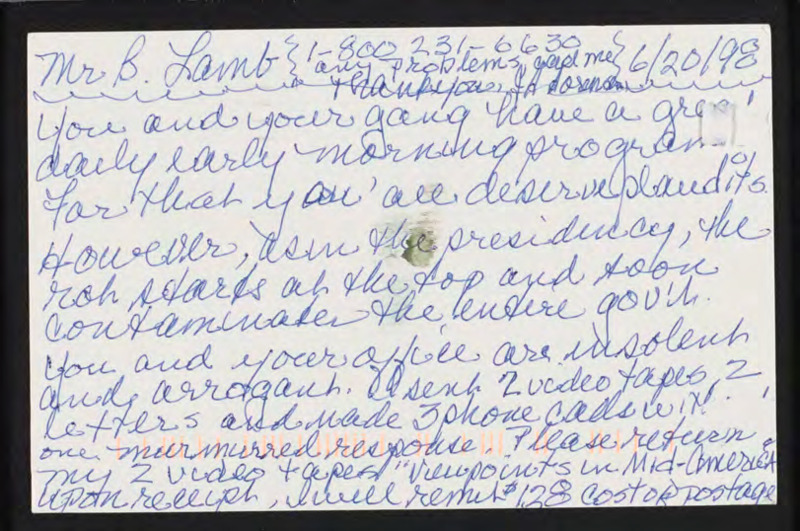 Mr B. Lamb { 1-800 231-6630 } 6/20/98
any problems, call me
thank you,
You and your gang have a
daily early morning program.
For that you all deserve plaudits.
However, as in the presidency, the
rot starts at the top and soon
contaminates the entire gov't.
You and your office are insolent
and arrogant. I sent 2 video tapes, 2
letters and made 3 phone calls
one murmurred response. Please return
my 2 video tapes "Viewpoints in Mid-America"
upon receipt, I will remit $128 cost of postage